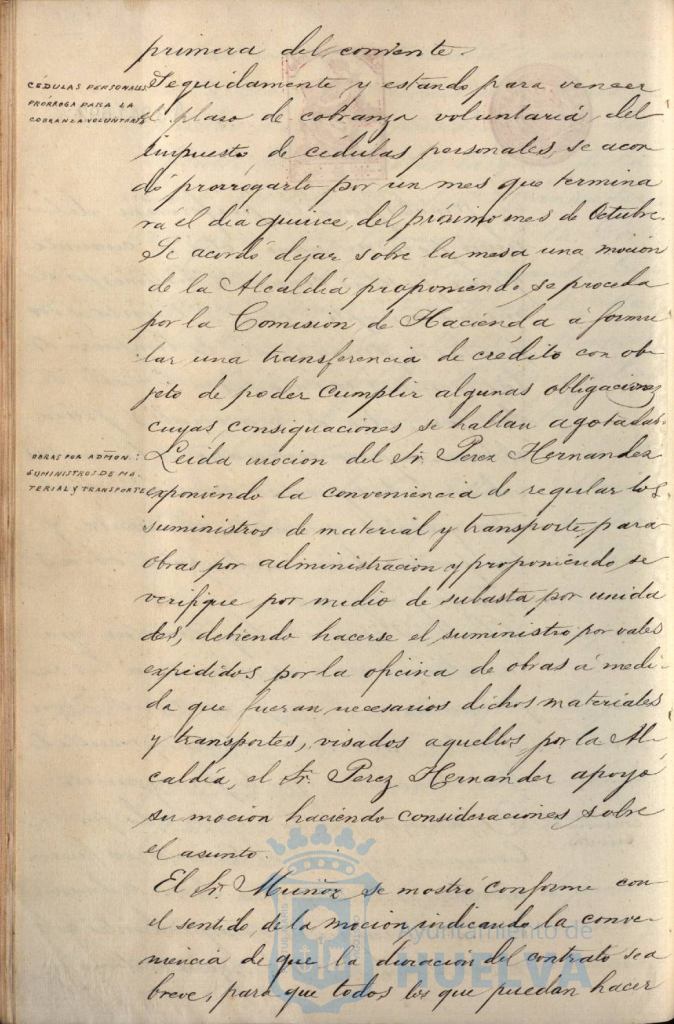 primera del corriente.
CÉDULAS PERSONALES
PRÓRROGA PARA LA
COBRANZA VOLUNTARIA
Seguidamente y estando para vencer
el plaso de cobranza voluntaria del
impuesto de cédulas personales, se acor-
dó prorrogarlo por un mes que termina
rá el dia quince del próximo mes de Octubre.
Se acordó dejar sobre la mesa una moción
de la Alcaldiá proponiendo se proceda
por la Comisión de Hacienda á formu
lar una transferencia de crédito con ob-
jeto de poder cumplir algunas obligaciones
cuyas consignaciones se hallan agotadas.
OBRAS POR ADMON.:
SUMINISTROS DE MA-
TERIAL Y TRANSPORTE
Leida mocion del Sr. Perez Hernandez
exponiendo la conveniencia de regular los
suministros de material y transporte para
obras por administración y proponiendo se
verifique por medio de subasta por unida
des, debiendo hacerse el suministro por vales
expedidos por la oficina de obras á medi-
da que fueran necesarios dichos materiales
y transportes, visados aquellos por la Al-
caldía, el Sr. Perez Hernandez apoyó
su mocion haciendo consideraciones sobre
el asunto.
El Sr. Muñoz se mostró conforme con
el sentido de la mocion indicando la conve-
niencia de que la duracion del contrato sea
breve, para que todos los que puedan hacer
Ayuntamiento de
HUELVA